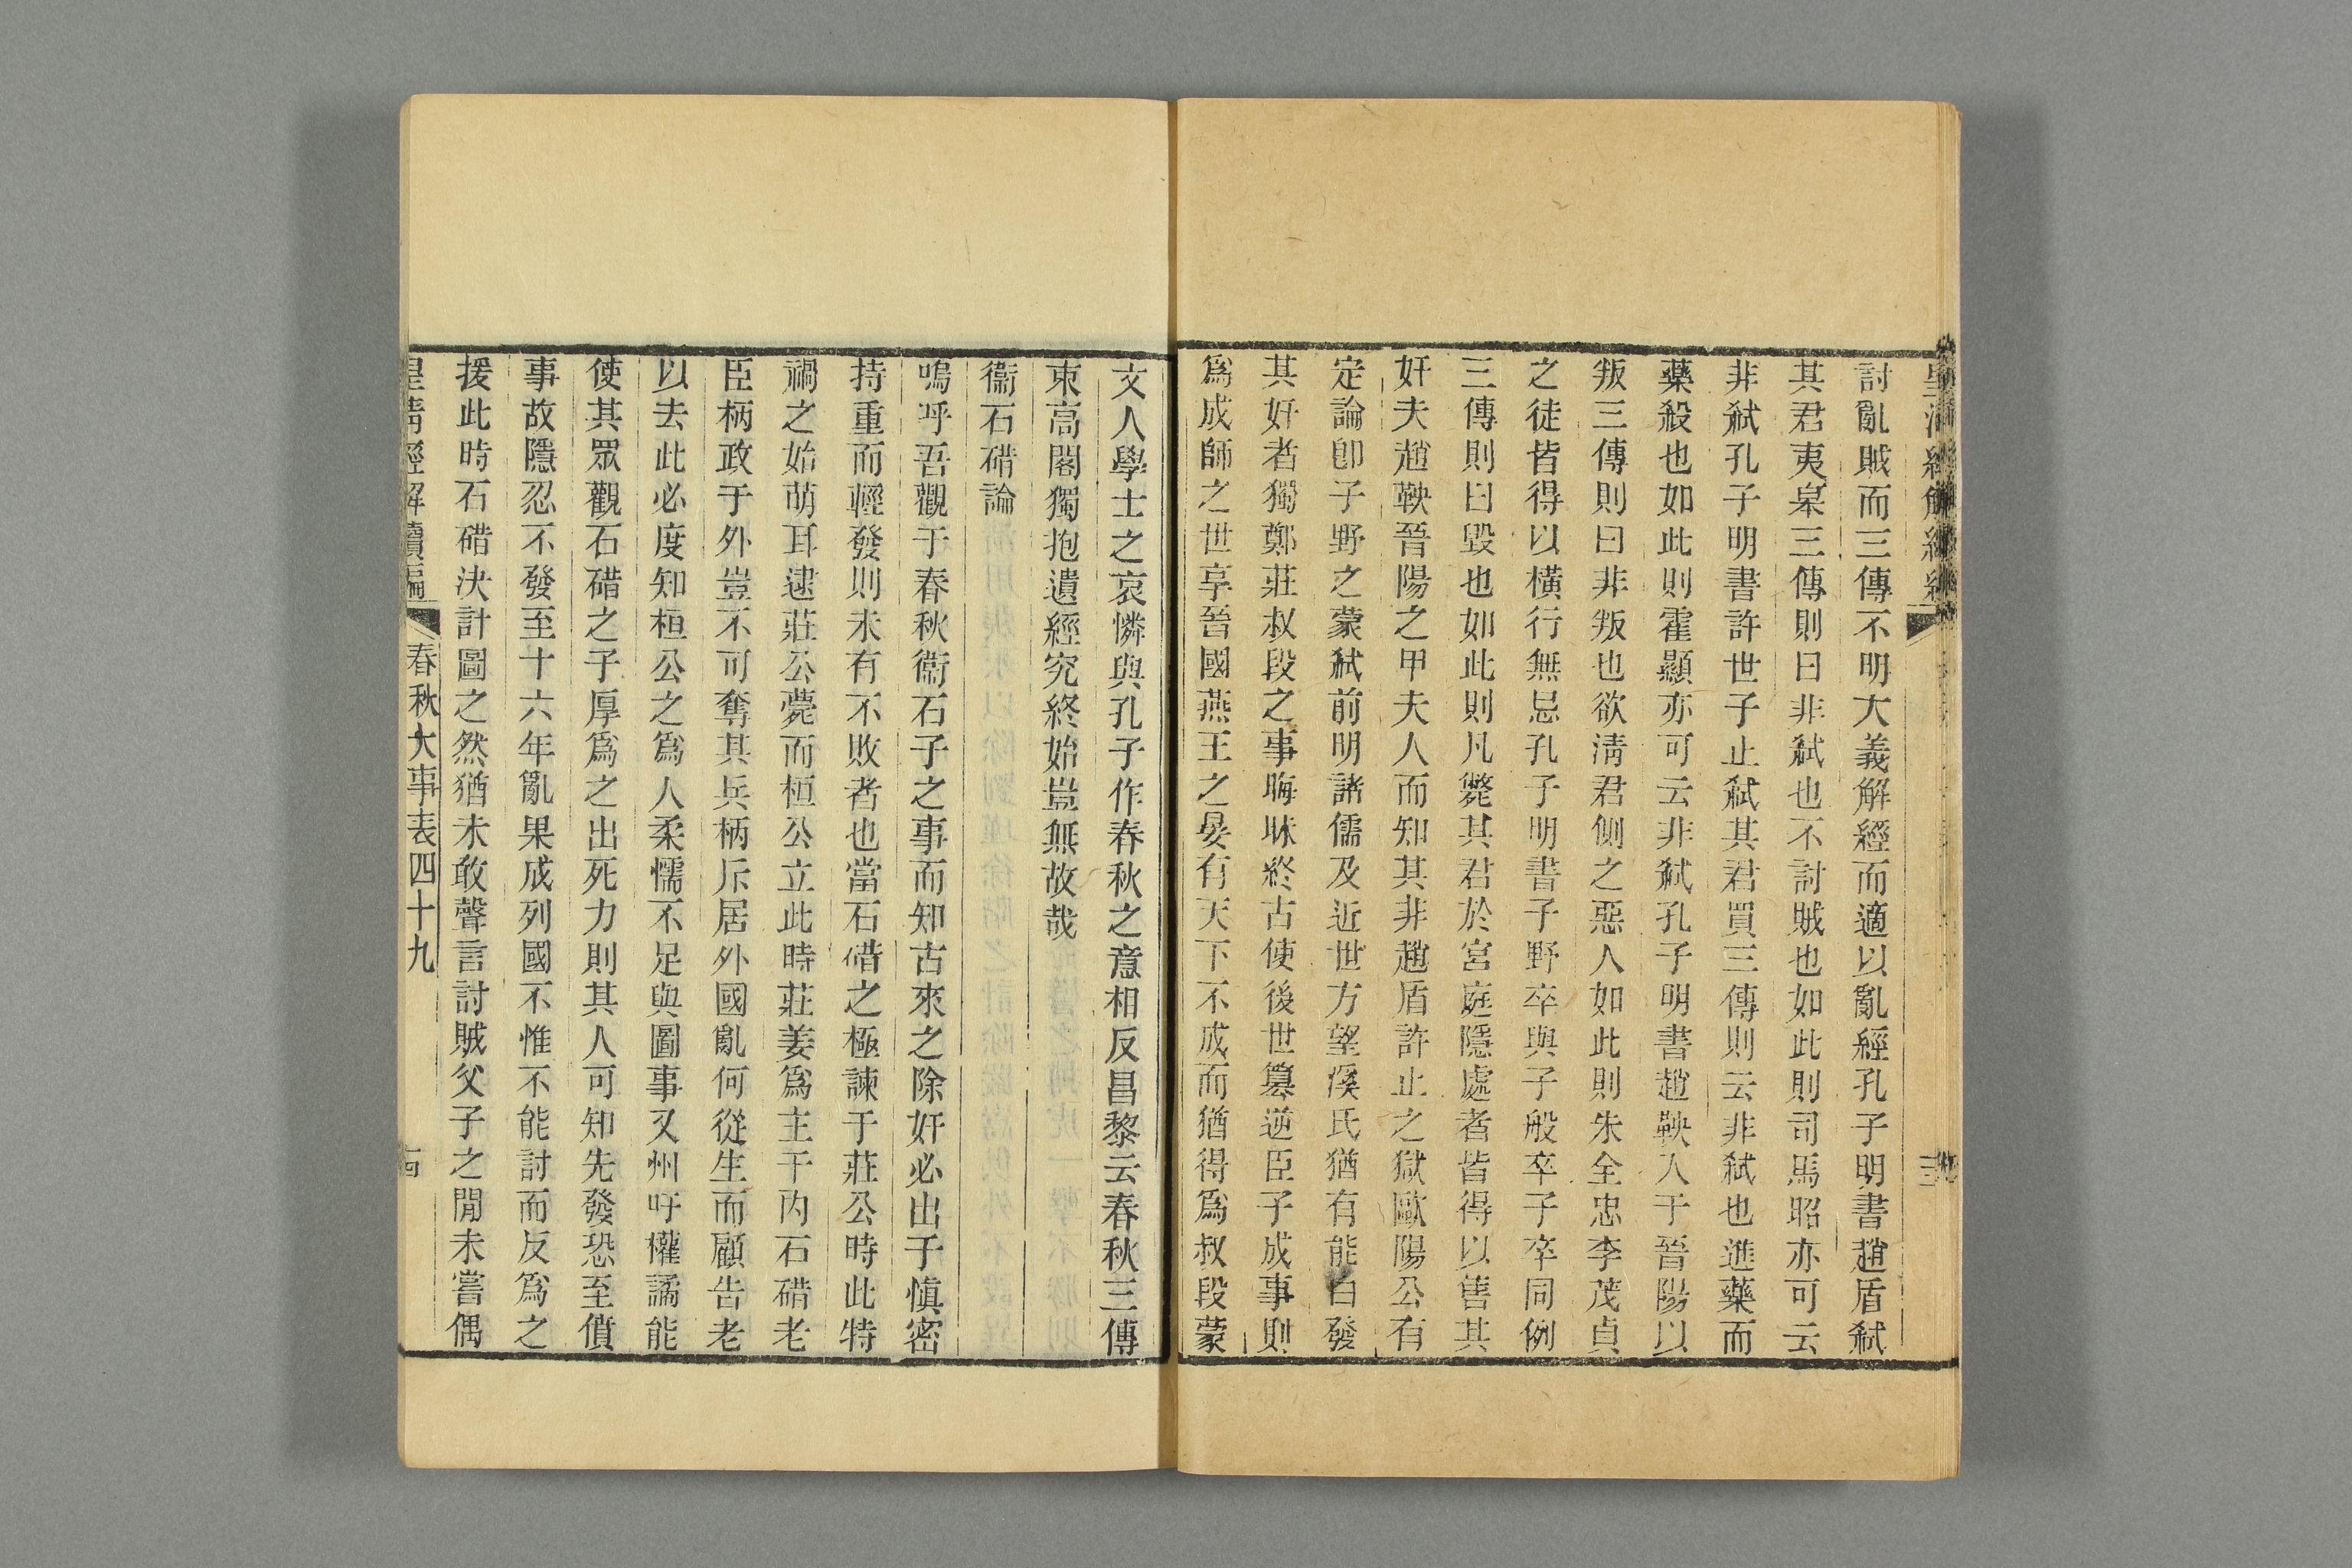 討亂賊而三傳不明大義解經而適以亂經孔子明書趙盾弑
其君夷臯三傳則曰非弑也不討賊也如此則司馬昭亦可云
非弑孔子明書許世子止弑其君買三傳則云非弑也進藥而
藥殺也如此則霍顯亦可云非弑孔子明書趙鞅入于晉陽以
叛三傳則曰非叛也欲淸君側之惡人如此則朱全忠李茂貞
之徒皆得以橫行無忌孔子明書子野卒與子般卒子卒同例
三傳則曰毀也如此則凡斃其君於宮庭隱處者皆得以售其
奸夫趙鞅晉陽之甲夫人而知其非趙盾許止之獄歐陽公有
定論卽子野之蒙弑前明諸儒及近世方望溪氏猶有能白發
其奸者獨鄭莊叔段之事晦昧終古使後世簒逆臣子成事則
爲成師之世享晉國燕王之晏有天下不成而猶得爲叔段蒙
文人學士之哀憐與孔子作春秋之意相反昌黎云春秋三傳
束高閣獨抱遺經究終始豈無故哉
衞石碏論
嗚呼吾觀于春秋衞石子之事而知古來之除奸必出于愼密
持重而輕發則未有不敗者也當石碏之極諫于莊公時此特
禍之始萌耳逮莊公薨而桓公立此時莊姜爲主于內石碏老
臣柄政于外豈不可奪其兵柄斥居外國亂何從生而顧告老
以去此必度知桓公之爲人柔懦不足與圖事又州吁權譎能
使其眾觀石碏之子厚爲之出死力則其人可知先發恐至僨
事故隱忍不發至十六年亂果成列國不惟不能討而反爲之
援此時石碏決計圖之然猶未敢聲言討賊父子之閒未嘗偶
皇淸經解續編 春秋大事表四十九